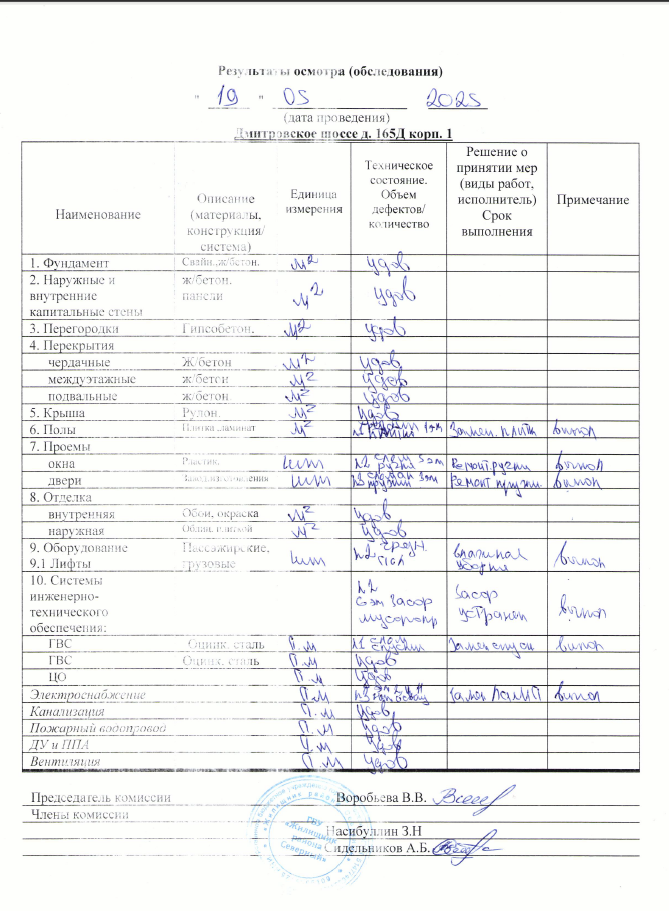 Результаты осмотра (обследования)
" 19 " 05 2025
(дата проведения)
Дмитровское шоссе д. 165Д корп. 1
Наименование Описание (материалы, конструкция/ система) Единица измерения Техническое состояние. Объем дефектов/ количество Решение о принятии мер (виды работ, исполнитель) Срок выполнения Примечание
1. Фундамент Свайн.,ж/бетон. м2 удов
2. Наружные и внутренние капитальные стены ж/бетон. панели м2 удов
3. Перегородки Гипсобетон. м2 удов
4. Перекрытия
чердачные Ж/бетон м2 удов
междуэтажные ж/бетон м2 удов
подвальные ж/бетон м2 удов
5. Крыша Рулон. м2 удов
6. Полы Плитка ламинат м2 Замен. плитк выпол
7. Проемы
окна Пластик. шт Ремонт ручки выпол
двери шт Ремонт пружин выпол
8. Отделка
внутренняя Обои, окраска м2 удов
наружная Облиц. плиткой м2 удов
9. Оборудование
9.1 Лифты Пассажирские, грузовые шт влажная уборка выпол
10. Системы инженерно-технического обеспечения: засор мусоропр засор устранен выпол
ГВС Оцинк. сталь П.м выпол
ГВС Оцинк. сталь П.м удов
ЦО П.м удов
Электроснабжение П.м замен ламп выпол
Канализация П.м удов
Пожарный водопровод П.м удов
ДУ и ППА П.м удов
Вентиляция П.м удов
Председатель комиссии Воробьева В.В.
Члены комиссии
Насибуллин З.Н
Сидельников А.Б.
ГБУ
«Жилищник
района
Северный»